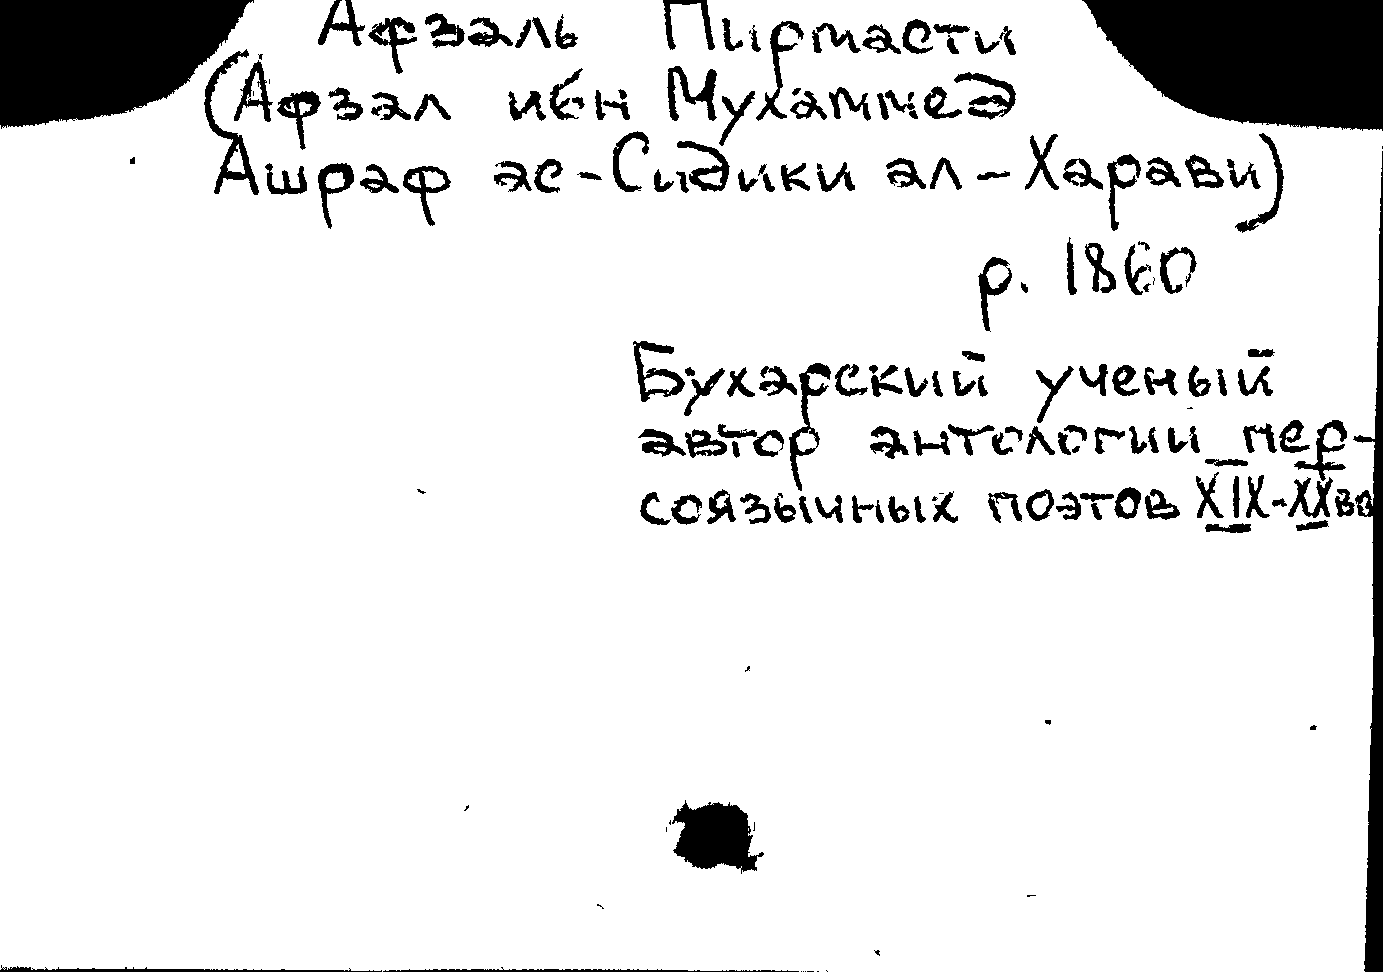 Афзаль Пирмасти
(Афзал ибн Мухаммед
Ашраф ас-Сидики ал-Харави)
р. 1860
Бухарский ученый
автор антологии пер-
соязычных поэтов XIX-XX вв